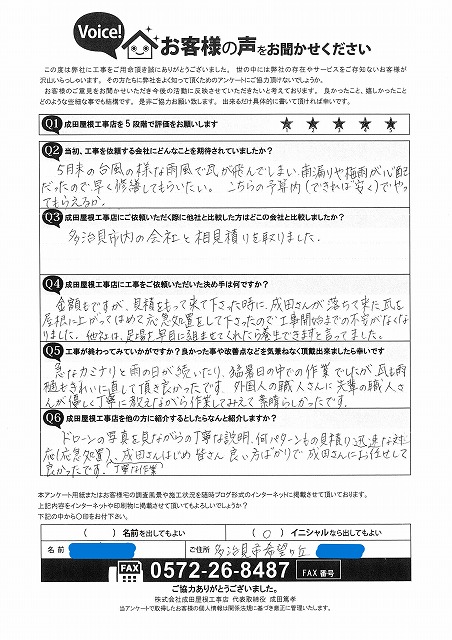 Voice!
お客様の声をお聞かせください
この度は弊社に工事をご用命頂き誠にありがとうございました。 世の中には弊社の存在やサービスをご存知ないお客様が
沢山いらっしゃいます。 その方たちに弊社をよく知って頂くためのアンケートにご協力頂けないでしょうか。
お客様のご意見をお聞かせいただき今後の活動に反映させていただきたいと考えております。 良かったこと、嬉しかったこと
どのような些細な事でも結構です。 是非ご協力お願い致します。 出来るだけ具体的に書いて頂ければ幸いです。
Q1 成田屋根工事店を5段階で評価をお願いします ★ ★ ★ ★ ★
Q2 当初、工事を依頼する会社にどんなことを期待されていましたか?
5月末の台風の様な雨風で瓦が飛んでしまい、雨漏りや梅雨が心配
だったので早く修繕してもらいたい。 こちらの予算内(できれば安く)でやっ
てもらえるか。
Q3 成田屋根工事店にご依頼いただく際に他社と比較した方はどこの会社と比較しましたか?
多治見市内の会社と相見積りを取りました。
Q4 成田屋根工事店に工事をご依頼いただいた決め手は何ですか?
金額もですが、見積をもって来て下さった時に、成田さんが落ちて来た瓦を
屋根に上がってはめて応急処置をして下さったので工事開始までの不安がなくな
りました。他社は、足場を早目に組ませてくれたら養生できますと言ってました。
Q5 工事が終わってみていかがですか?良かった事や改善点などを気兼ねなく頂戴出来ましたら幸いです
急なカミナリと雨の日が続いたり、猛暑日の中での作業でしたが、瓦も雨
樋もきれいに直して頂き良かったです。外国人の職人さんに先輩の職人さ
んが優しく丁寧に教えながら作業してみえて素晴らしかったです。
Q6 成田屋根工事店を他の方に紹介するとしたらなんと紹介しますか?
ドローンの写真を見ながらの丁寧な説明、何パターンもの見積り、迅速な対
応(応急処置)、成田さんはじめ皆さん良い方ばかりで成田さんにお任せして
良かったです。(丁寧な作業)
本アンケート用紙またはお客様宅の調査風景や施工状況を随時ブログ形式のインターネットに掲載させて頂いております。
上記内容をインターネットや印刷物に掲載させて頂いてもよろしいでしょうか?
下記の中から〇印をお付下さい。
( )名前を出してもよい (○)イニシャルなら出してもよい
名前 ご住所 多治見市希望ヶ丘
FAX 0572-26-8487 FAX番号
ご協力ありがとうございました。
株式会社成田屋根工事店 代表取締役 成田篤孝
当アンケートで取得したお客様の個人情報は関係法規に基づき適正に管理いたします。